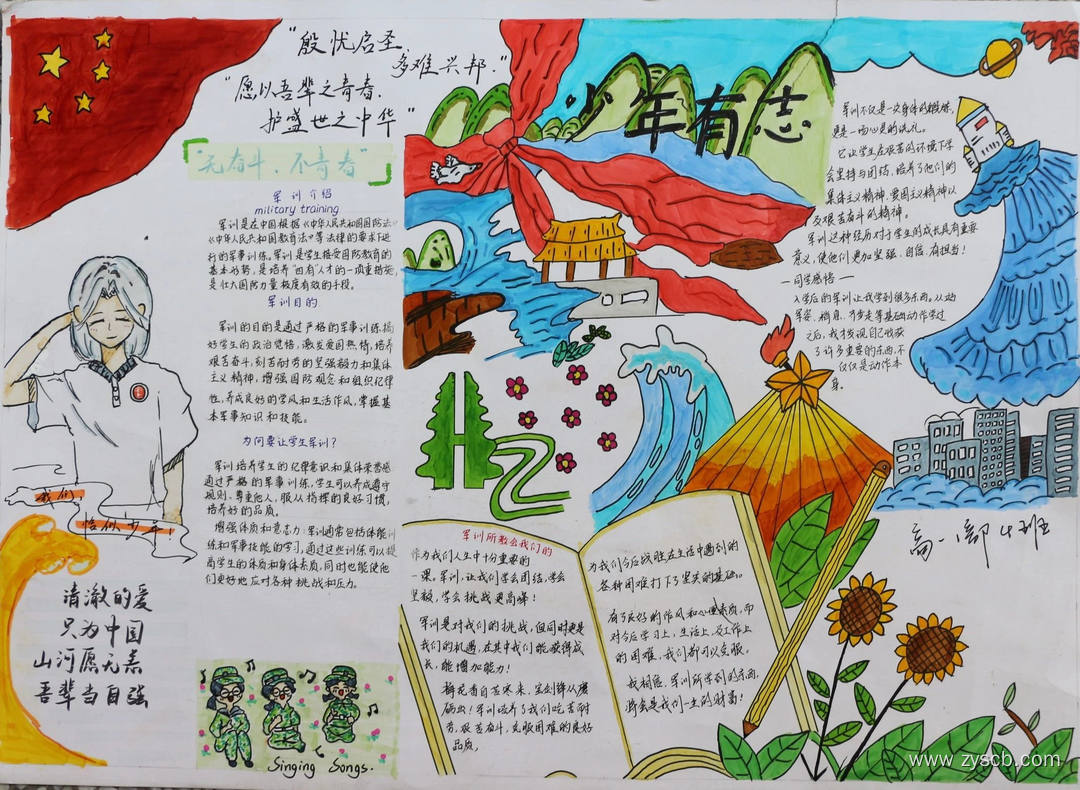 “殷忧启圣,
多难兴邦.”
“愿以吾辈之青春,
护盛世之中华”
“无奋斗、不青春”
军训介绍
military training
军训是在中国根据《中华人民共和国国防法》
《中华人民共和国教育法》等法律的要求下进
行的军事训练,军训是学生接受国防教育的
基本形势,是培养“四有”人才的一项重要措施,
是壮大国防力量极度有效的手段。
军训目的
军训的目的是通过严格的军事训练,搞
好学生的政治觉悟,激发爱国热情,培养
艰苦奋斗,刻苦耐劳的坚强毅力和集体
主义精神,增强国防观念和组织纪律
性,养成良好的学风和生活作风,掌握基
本军事知识和技能。
为何要让学生军训?
军训培养学生的纪律意识和集体荣誉感
通过严格的军事训练,学生可以养成遵守
规则、尊重他人,服从指挥的良好习惯,
培养好的品质。
增强体质和意志力:军训通常包括体能训
练和军事技能的学习,通过这些训练可以提
高学生的体质和身体素质,同时也能使他
们更好地应对各种挑战和压力。
我们,
恰似少年
清澈的爱
只为中国
山河愿无恙
吾辈当自强
Singing Songs.
少年有志
军训不仅是一次身体的锻炼,
更是一场心灵的洗礼。
它让学生在艰苦的环境下学
会坚持与团结,培养了他们的
集体主义精神、爱国主义精神以
及艰苦奋斗的精神。
军训这种经历对于学生的成长具有重要
意义,使他们更加坚强、自信、有担当!
—同学感悟—
入学后的军训让我学到很多东西。从站
军姿、稍息、齐步走等基础动作学过
之后,我才发现自己收获
了许多重要的东西,不
仅仅是动作本
身。
高一、1部4班
军训所教会我们的
作为我们人生中十分重要的
一课,军训,让我们学会团结,学会
坚毅,学会挑战更高峰!
军训是对我们的挑战,但同时更是
我们的机遇,在其中我们能获得成
长,能增加能力!
梅花香自苦寒来,宝剑锋从磨
砺出!军训培养了我们吃苦耐
劳、艰苦奋斗,克服困难的良好
品质,
为我们今后战胜在生活中遇到的
各种困难打下了坚实的基础。
有了良好的作风和心理素质,面
对今后学习上,生活上,及工作上
的困难,我们都可以克服。
我相信,军训所学到的东西,
将会是我们一生的财富!
www.zyscb.com